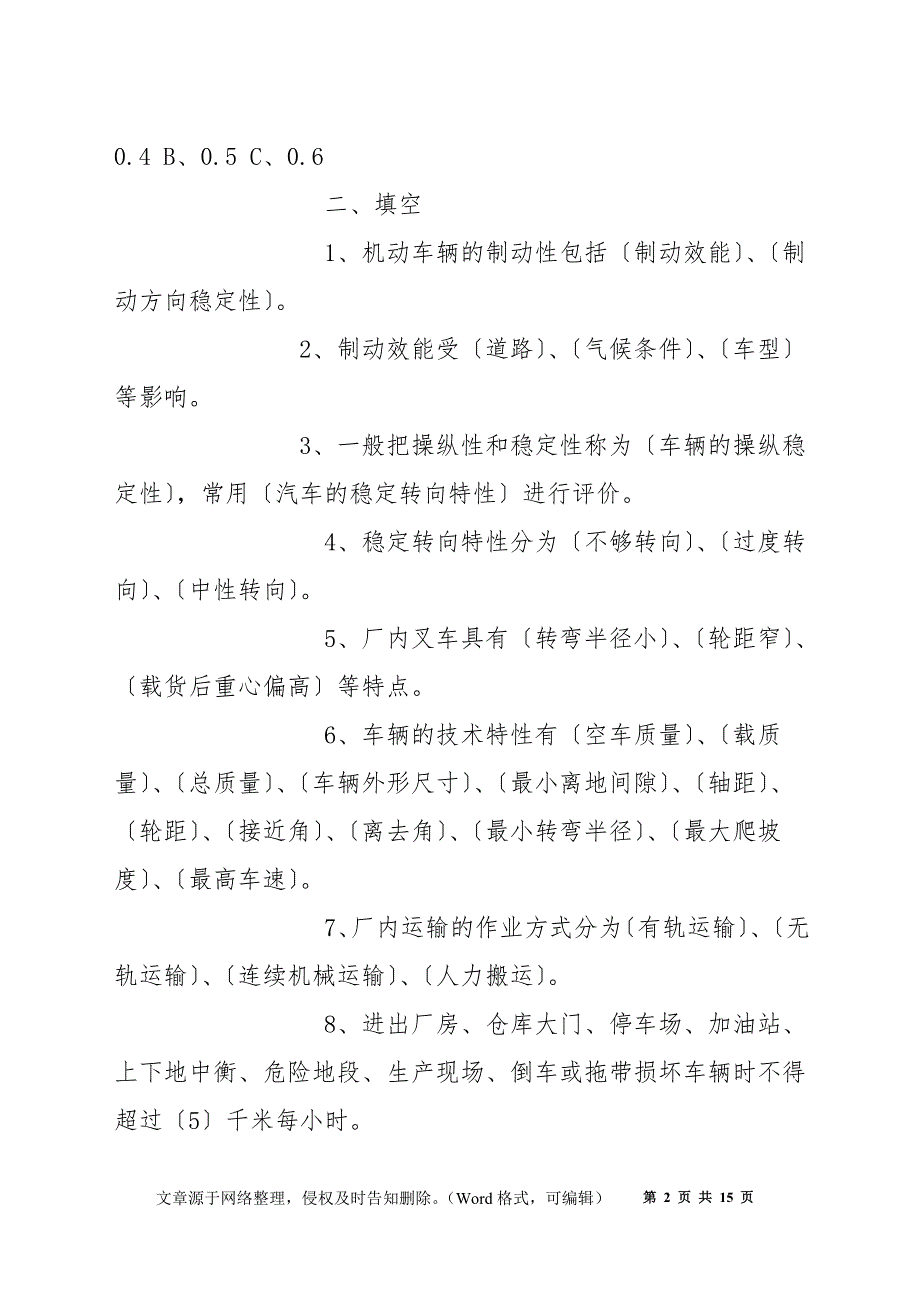 0.4 B、0.5 C、0.6
二、填空
1、机动车辆的制动性包括〔制动效能〕、〔制
动方向稳定性〕。
2、制动效能受〔道路〕、〔气候条件〕、〔车型〕
等影响。
3、一般把操纵性和稳定性称为〔车辆的操纵稳
定性〕，常用〔汽车的稳定转向特性〕进行评价。
4、稳定转向特性分为〔不够转向〕、〔过度转
向〕、〔中性转向〕。
5、厂内叉车具有〔转弯半径小〕、〔轮距窄〕、
〔载货后重心偏高〕等特点。
6、车辆的技术特性有〔空车质量〕、〔载质
量〕、〔总质量〕、〔车辆外形尺寸〕、〔最小离地间隙〕、〔轴距〕、
〔轮距〕、〔接近角〕、〔离去角〕、〔最小转弯半径〕、〔最大爬坡
度〕、〔最高车速〕。
7、厂内运输的作业方式分为〔有轨运输〕、〔无
轨运输〕、〔连续机械运输〕、〔人力搬运〕。
8、进出厂房、仓库大门、停车场、加油站、
上下地中衡、危险地段、生产现场、倒车或拖带损坏车辆时不得
超过〔5〕千米每小时。
文章源于网络整理，侵权及时告知删除。（Word 格式，可编辑） 第 2 页 共 15 页